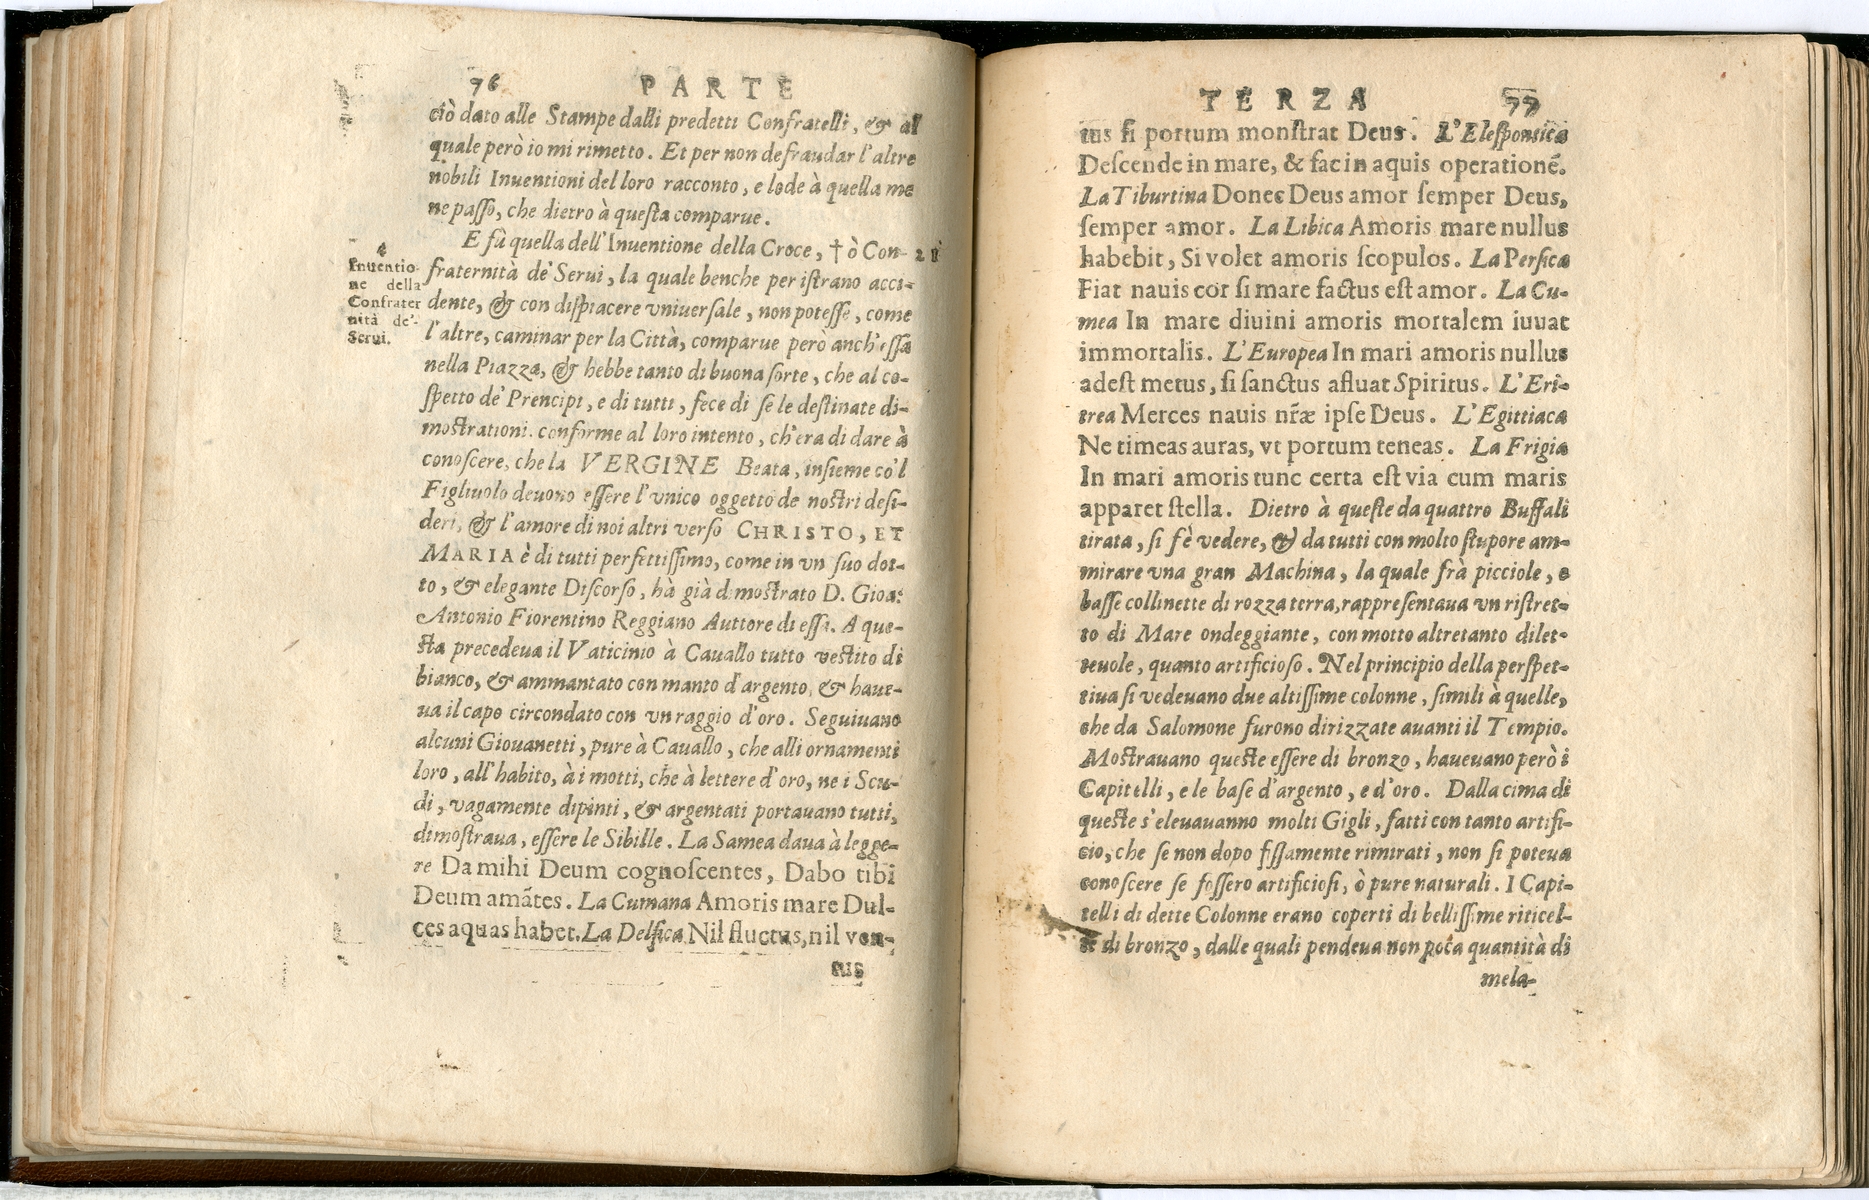 76 PARTE
ciò dato alle Stampe dalli predetti Confratelli, & al
quale però io mi rimetto. Et per non defraudar l'altre
nobili Inuentioni del loro racconto, e lode à quella me
ne passo, che dietro à questa comparue.
E fù quella dell'Inuentione della Croce, † ò Con- 21
fraternità de' Serui, la quale benche per istrano acci-
dente, & con dispiacere vniuersale, non potesse, come
l'altre, caminar per la Città, comparue però anch'essa
nella Piazza, & hebbe tanto di buona sorte, che al co-
spetto de' Prencipi, e di tutti, fece di se le destinate di-
mostrationi. conforme al loro intento, ch'era di dare à
conoscere, che la VERGINE Beata, insieme co'l
Figliuolo deuono essere l'vnico oggetto de nostri desi-
deri, & l'amore di noi altri verso CHRISTO, ET
MARIA è di tutti perfettissimo, come in vn suo dot-
to, & elegante Discorso, hà già dimostrato D. Gioa:
Antonio Fiorentino Reggiano Auttore di essa. A que-
sta precedeua il Vaticinio à Cauallo tutto vestito di
bianco, & ammantato con manto d'argento, & haue-
ua il capo circondato con vn raggio d'oro. Seguiuano
alcuni Giouanetti, pure à Cauallo, che alli ornamenti
loro, all'habito, à i motti, che à lettere d'oro, ne i Scu-
di, vagamente dipinti, & argentati portauano tutti,
dimostraua, essere le Sibille. La Samea daua à legge-
re Da mihi Deum cognoscentes, Dabo tibi
Deum amãtes. La Cumana Amoris mare Dul-
ces aquas habet. La Delfica Nil fluctus, nil ven-
tus
4
Inuentio-
ne della
Confrater
nità de'
Serui.
TERZA 77
tus si portum monstrat Deus. L'Elesponsica
Descende in mare, & fac in aquis operationẽ.
La Tiburtina Donec Deus amor semper Deus,
semper amor. La Libica Amoris mare nullus
habebit, Si volet amoris scopulos. La Persica
Fiat nauis cor si mare factus est amor. La Cu-
mea In mare diuini amoris mortalem iuuat
immortalis. L'Europea In mari amoris nullus
adest metus, si sanctus afluat Spiritus. L'Eri-
trea Merces nauis nr̃æ ipse Deus. L'Egittiaca
Ne timeas auras, vt portum teneas. La Frigia
In mari amoris tunc certa est via cum maris
apparet stella. Dietro à queste da quattro Buffali
tirata, si fè vedere, & da tutti con molto stupore am-
mirare vna gran Machina, la quale frà picciole, e
basse collinette di rozza terra, rappresentaua vn ristret-
to di Mare ondeggiante, con motto altretanto dilet-
teuole, quanto artificioso. Nel principio della perspet-
tiua si vedeuano due altissime colonne, simili à quelle,
che da Salomone furono dirizzate auanti il Tempio.
Mostrauano queste essere di bronzo, haueuano però i
Capitelli, e le base d'argento, e d'oro. Dalla cima di
queste s'eleuauanno molti Gigli, fatti con tanto artifi-
cio, che se non dopo fissamente rimirati, non si poteua
conoscere se fossero artificiosi, ò pure naturali. I Capi-
telli di dette Colonne erano coperti di bellissime riticel-
le di bronzo, dalle quali pendeua non poca quantità di
mela-